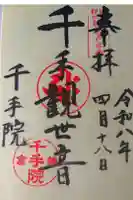 奉拝
令和八年
四月十八日
千手観世音
千手院
千手院